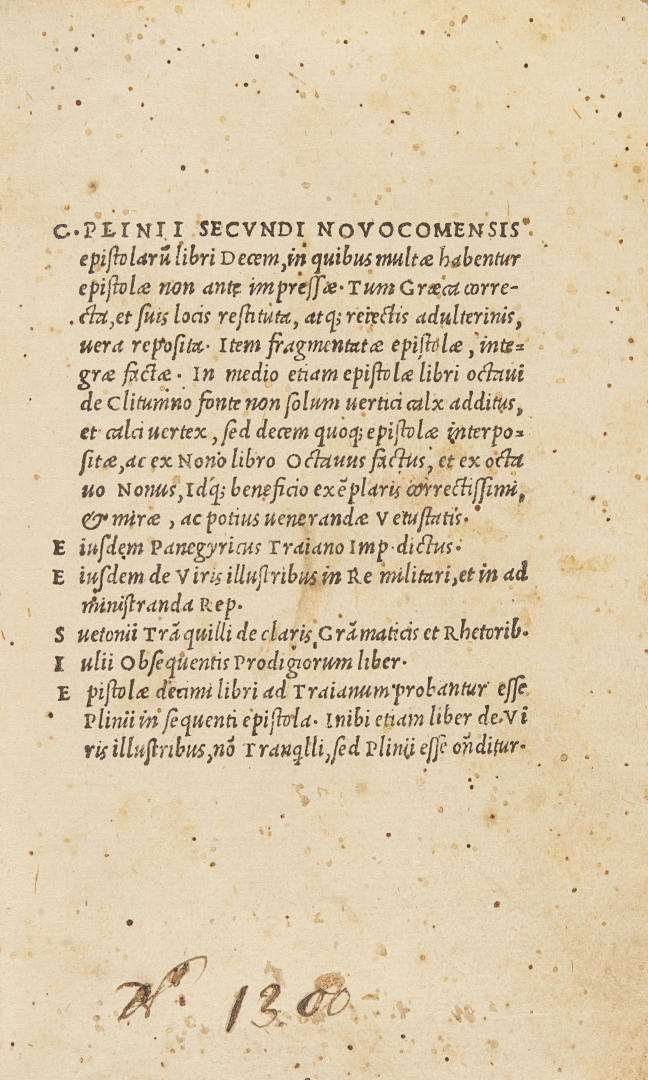 C. PLINII SECVNDI NOVOCOMENSIS
epistolarū libri Decem, in quibus multæ habentur
epistolæ non ante impressæ. Tum Græca corre-
cta, et suis locis restituta, atq; reiectis adulterinis,
uera reposita. Item fragmentatæ epistolæ, inte=
græ factæ. In medio etiam epistolæ libri octaui
de Clitumno fonte non solum uertici calx additus,
et calci uertex, sed decem quoq; epistolæ interpo=
sitæ, ac ex Nono libro Octauus factus, et ex octa
uo Nonus, Idq́; beneficio exēplaris correctissimi,
& miræ, ac potius uenerandæ Vetustatis.
E iusdem Panegyricus Traiano Imp. dictus.
E iusdem de Viris illustribus in Re militari, et in ad
ministranda Rep.
S uetonii Trāquilli de claris Grāmaticis et Rhetorib.
I ulii Obsequentis Prodigiorum liber.
E pistolæ decimi libri ad Traianum probantur esse
Plinii in sequenti epistola. Inibi etiam liber de Vi
ris illustribus, nō Tranqlli, sed Plinii esse oñditur.
N. 1300